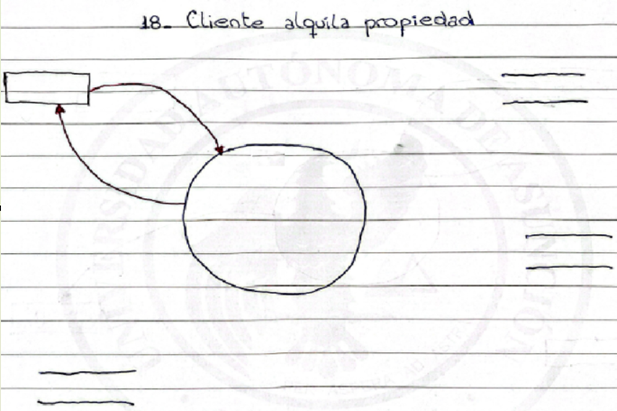 18- Cliente alquila propiedad
UNIVERSIDAD AUTÓNOMA DE ASUNCIÓN